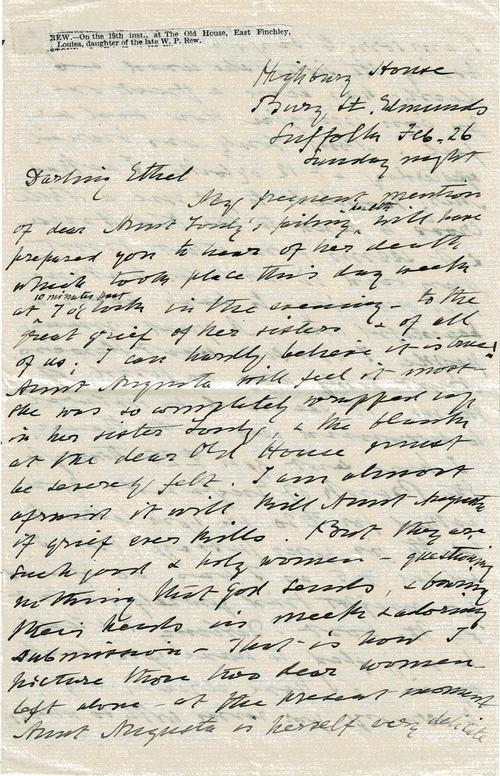 REW.—On the 19th inst., at The Old House, East Finchley,
Louisa, daughter of the late W. P. Rew.
Highbury House
Bury St. Edmunds
Suffolk Feb. 26
Sunday night
Darling Ethel
My frequent mention
of dear Aunt Loudy's failing health will have
prepared you to hear of her death
which took place this day week
at 10 minutes past 7 o'clock in the evening - to the
great grief of her sisters & of all
of us. I can hardly believe it is true!
Aunt Augusta will feel it most
she was so completely wrapped up
in her sister & the blank
at the dear Old House must
be severely felt. I am almost
afraid it will kill Aunt Augusta
if grief ever kills. But they are
such good & holy women - questioning
nothing that God sends, & bowing
their heads in meek & adoring
submission - That is how I
picture those two dear women
left alone - at the present moment
Aunt Augusta is herself very delicate